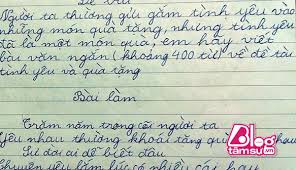 Đề bài
Người ta thường gửi gắm tình yêu vào
những món quà tặng, nhưng tình yêu
đã là một món quà, em hãy viết
bài văn ngắn (khoảng 400 từ) về đề tài
tình yêu và quà tặng
Bài làm
Trăm năm trong cõi người ta
Yêu nhau thường khoái tặng quà nhau
Sự đời ai dễ biết đâu
Chuyện yêu lắm lúc có nhiều cái hay
Blog
tamsu.vn